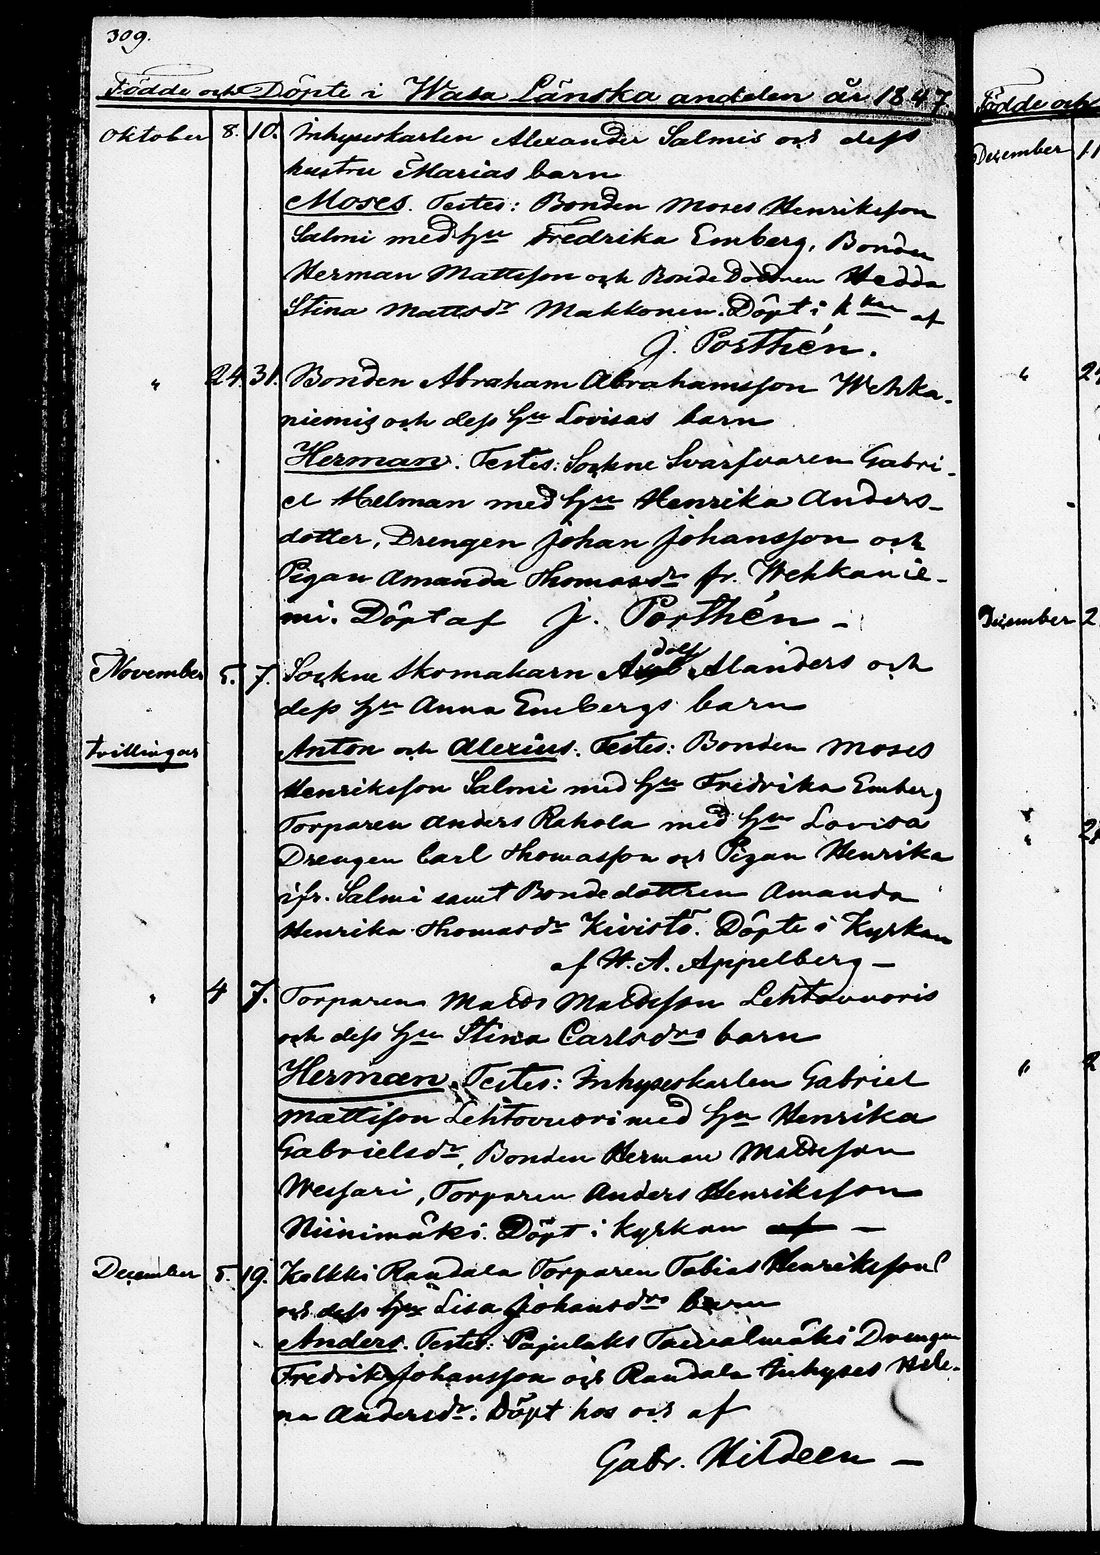 309.
Födde och Döpte i Wasa Länska andelen år 1847.
Födde och
Oktober 8. 10. Inhyseskarlen Alexander Salmis och dess
hustru Marias barn
Moses. Testes: Bonden Moses Henriksson
Salmi med hu Fredrika Emberg, Bonden
Herman Mattsson och Bonde Dottren Hedda
Stina Mattsdr Makkonen. Döpt i kkan af
J. Porthén.
" 24. 31. Bonden Abraham Abrahamsson Wehka-
niemis och dess hu Lovisas barn
Herman. Testes: Sockne Svarfvaren Gabri-
el Helman med hu Henrika Anders-
dotter, Drengen Johan Johansson och
Pigan Amanda Thomasdr fr. Wehkanie-
mi. Döpt af J. Porthén –
November 5. 7. Sockne Skomakarn Adolf Alanders och
dess hu Anna Embergs barn
tvillingar Anton och Alexius. Testes: Bonden Moses
Henriksson Salmi med hu Fredrika Emberg
Torparen Anders Rahola med hu Lovisa
Drengen Carl Thomasson och Pigan Henrika
ifr. Salmi samt Bondedottren Amanda
Henrika Thomasdr Kivistö. Döpte i Kyrkan
af H. A. Appelberg –
" 4 7. Torparen Matts Mattsson Lehtovuoris
och dess hu Stina Carlsdrs barn
Herman. Testes: Inhyseskarlen Gabriel
Mattsson Lehtovuori med hu Henrika
Gabrielsdr, Bonden Herman Mattsson
Wessari, Torparen Anders Henriksson
Niinimäki. Döpt i kyrkan af –
December 5. 19. Kolkki Randala Torparen Tobias Henrikssons
och dess hu Lisa Johansdrs barn
Anders. Testes: Pajulaks Taivalmäki Drengen
Fredrik Johansson och Randala Inhyses Hele-
na Andersdr. Döpt hos och af
Gabr. Hildeen –
December 11
" 24
December 2
" 28
" 2